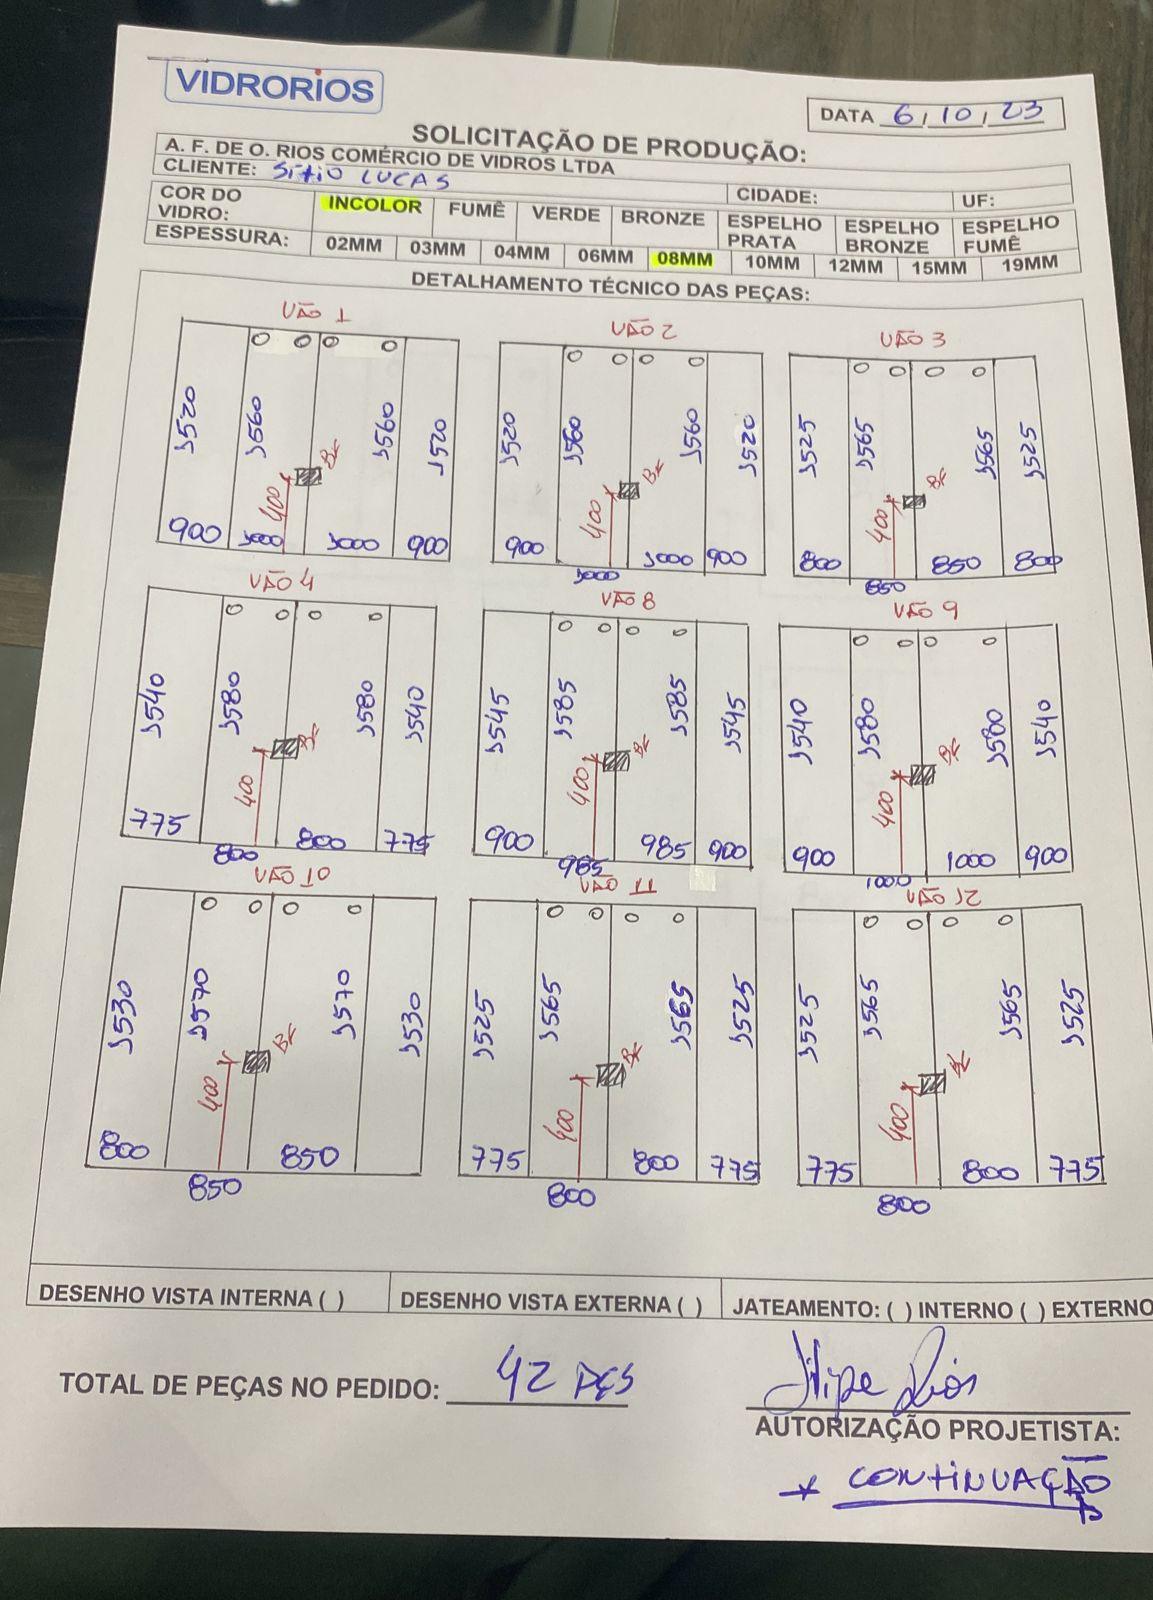 VIDRORIOS
DATA 6 / 10 / 23
SOLICITAÇÃO DE PRODUÇÃO:
A. F. DE O. RIOS COMÉRCIO DE VIDROS LTDA
CLIENTE: SÍTIO LUCAS CIDADE: UF:
COR DO VIDRO: INCOLOR FUMÊ VERDE BRONZE ESPELHO PRATA ESPELHO BRONZE ESPELHO FUMÊ
ESPESSURA: 02MM 03MM 04MM 06MM 08MM 10MM 12MM 15MM 19MM
DETALHAMENTO TÉCNICO DAS PEÇAS:
VÃO 1
1520 1560 1560 1520
400
900 1000 1000 900
VÃO 2
1520 1560 1560 1520
400
900 1000 1000 900
VÃO 3
1525 1565 1565 1525
400
800 850 850 800
VÃO 4
1540 1580 1580 1540
400
775 800 800 775
VÃO 8
1545 1585 1585 1545
400
900 985 985 900
VÃO 9
1540 1580 1580 1540
400
900 1000 1000 900
VÃO 10
1530 1570 1570 1530
400
800 850 850
VÃO 11
1525 1565 1565 1525
400
775 800 800 775
VÃO 12
1525 1565 1565 1525
400
775 800 800 775
DESENHO VISTA INTERNA ( ) DESENHO VISTA EXTERNA ( ) JATEAMENTO: ( ) INTERNO ( ) EXTERNO
TOTAL DE PEÇAS NO PEDIDO: 42 PÇS
Filipe Rios
AUTORIZAÇÃO PROJETISTA:
* CONTINUAÇÃO